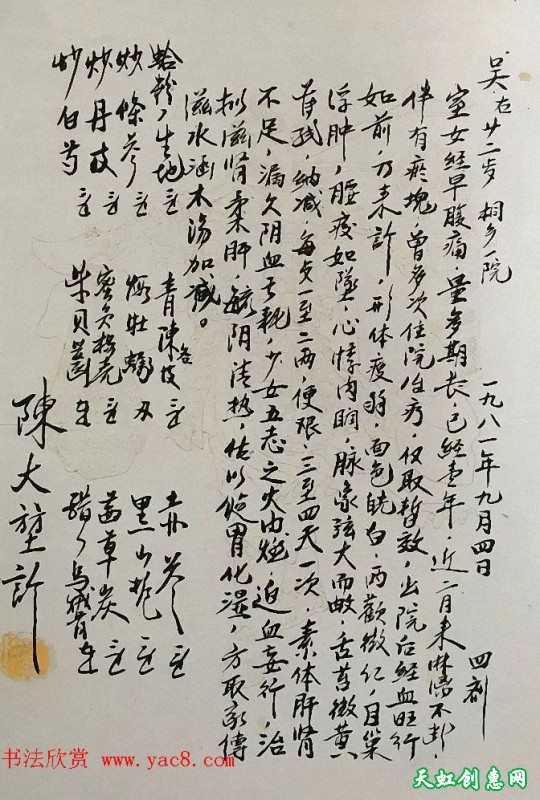 吴左 廿二岁 桐乡一院 一九八一年九月四日 四剂
室女经早腹痛，量多期长，已经壹年，近二月来淋漓不断，
伴有瘀块，曾多次住院治疗，仅取暂效，出院后经血旺行
如前，乃来诊，形体疲弱，面色㿠白，两颧微红，目窠
浮肿，腰疲如坠，心悸肉瞤，脉象弦大而，舌苔微黄
，纳减，每食一至二两，便艰，三至四天一次，素体肝肾
不足，漏久阴血亏耗，少女五志之火内炽，迫血妄行，治
拟滋肾柔肝，毓阴清热，佐以给胃化湿，方取家传
滋水涵木汤加减。
生地 青陈 各
炒条芩 煅牡蛎 黑山栀
炒丹 蜜炙 壳 茜草炭
炒白芍 贝 醋 乌贼骨
陈大堃诊
书法欣赏 www.yac8.com
天虹创惠网